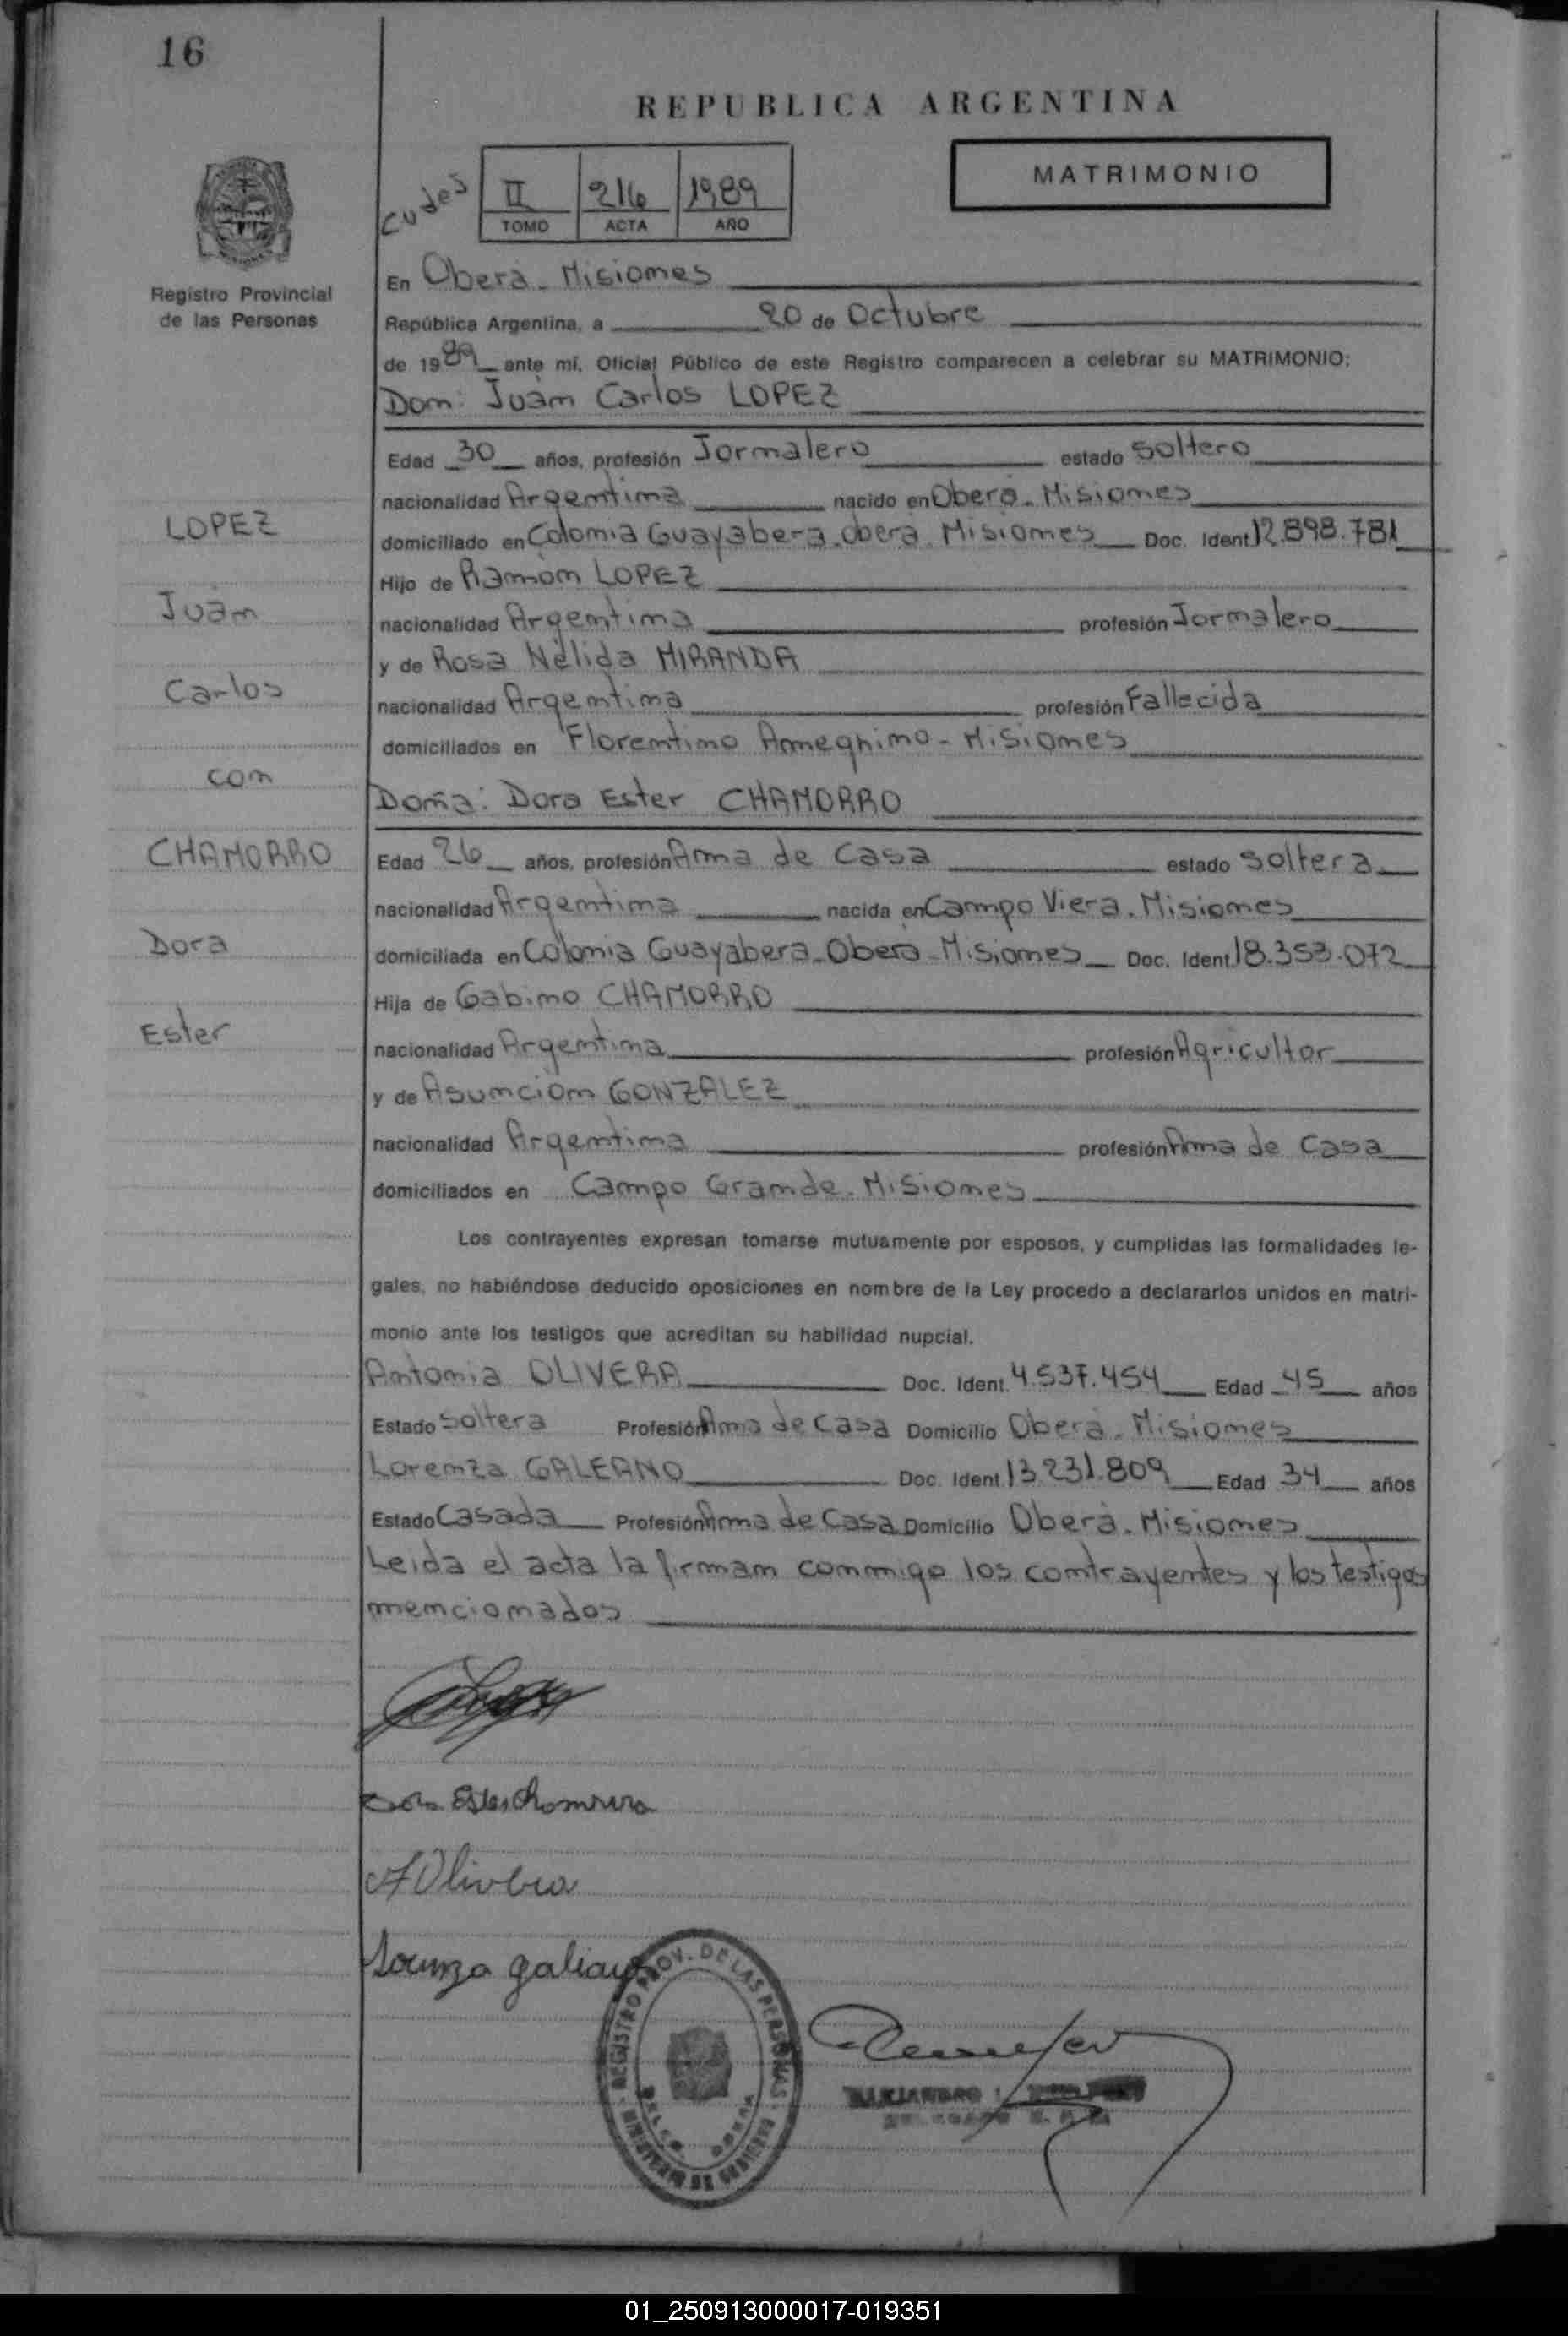 16
REPUBLICA ARGENTINA
MATRIMONIO
Cudes
II 216 1989
TOMO ACTA AÑO
Registro Provincial
de las Personas
En Oberà - Misiones
República Argentina, a 20 de Octubre
de 1989 ante mí, Oficial Público de este Registro comparecen a celebrar su MATRIMONIO:
Don: Juàn Carlos LOPEZ
Edad 30 años, profesión Jornalero estado Soltero
nacionalidad Argentina nacido en Oberà - Misiones
LOPEZ
domiciliado en Colonia Guayabera - Oberà - Misiones Doc. Ident. 12.898.781
Hijo de Ramòn LOPEZ
Juàn
nacionalidad Argentina profesión Jornalero
y de Rosa Nèlida MIRANDA
Carlos
nacionalidad Argentina profesión Fallecida
domiciliados en Florentino Ameghino - Misiones
con
Doña: Dora Ester CHAMORRO
CHAMORRO
Edad 26 años, profesión Ama de Casa estado Soltera
nacionalidad Argentina nacida en Campo Viera - Misiones
Dora
domiciliada en Colonia Guayabera - Oberà - Misiones Doc. Ident. 18.353.072
Hija de Gabino CHAMORRO
Ester
nacionalidad Argentina profesión Agricultor
y de Asunciòn GONZALEZ
nacionalidad Argentina profesión Ama de Casa
domiciliados en Campo Grande - Misiones
Los contrayentes expresan tomarse mutuamente por esposos, y cumplidas las formalidades le-
gales, no habiéndose deducido oposiciones en nombre de la Ley procedo a declararlos unidos en matri-
monio ante los testigos que acreditan su habilidad nupcial.
Antonia OLIVERA Doc. Ident. 4.537.454 Edad 45 años
Estado Soltera Profesión Ama de Casa Domicilio Oberà - Misiones
Lorenza GALEANO Doc. Ident. 13.231.809 Edad 34 años
Estado Casada Profesión Ama de Casa Domicilio Oberà - Misiones
Leida el acta la firman conmigo los contrayentes y los testigos
mencionados
A Olivera
REGISTRO PROV. DE LAS PERSONAS
MINISTERIO DE GOBIERNO
01_250913000017-019351